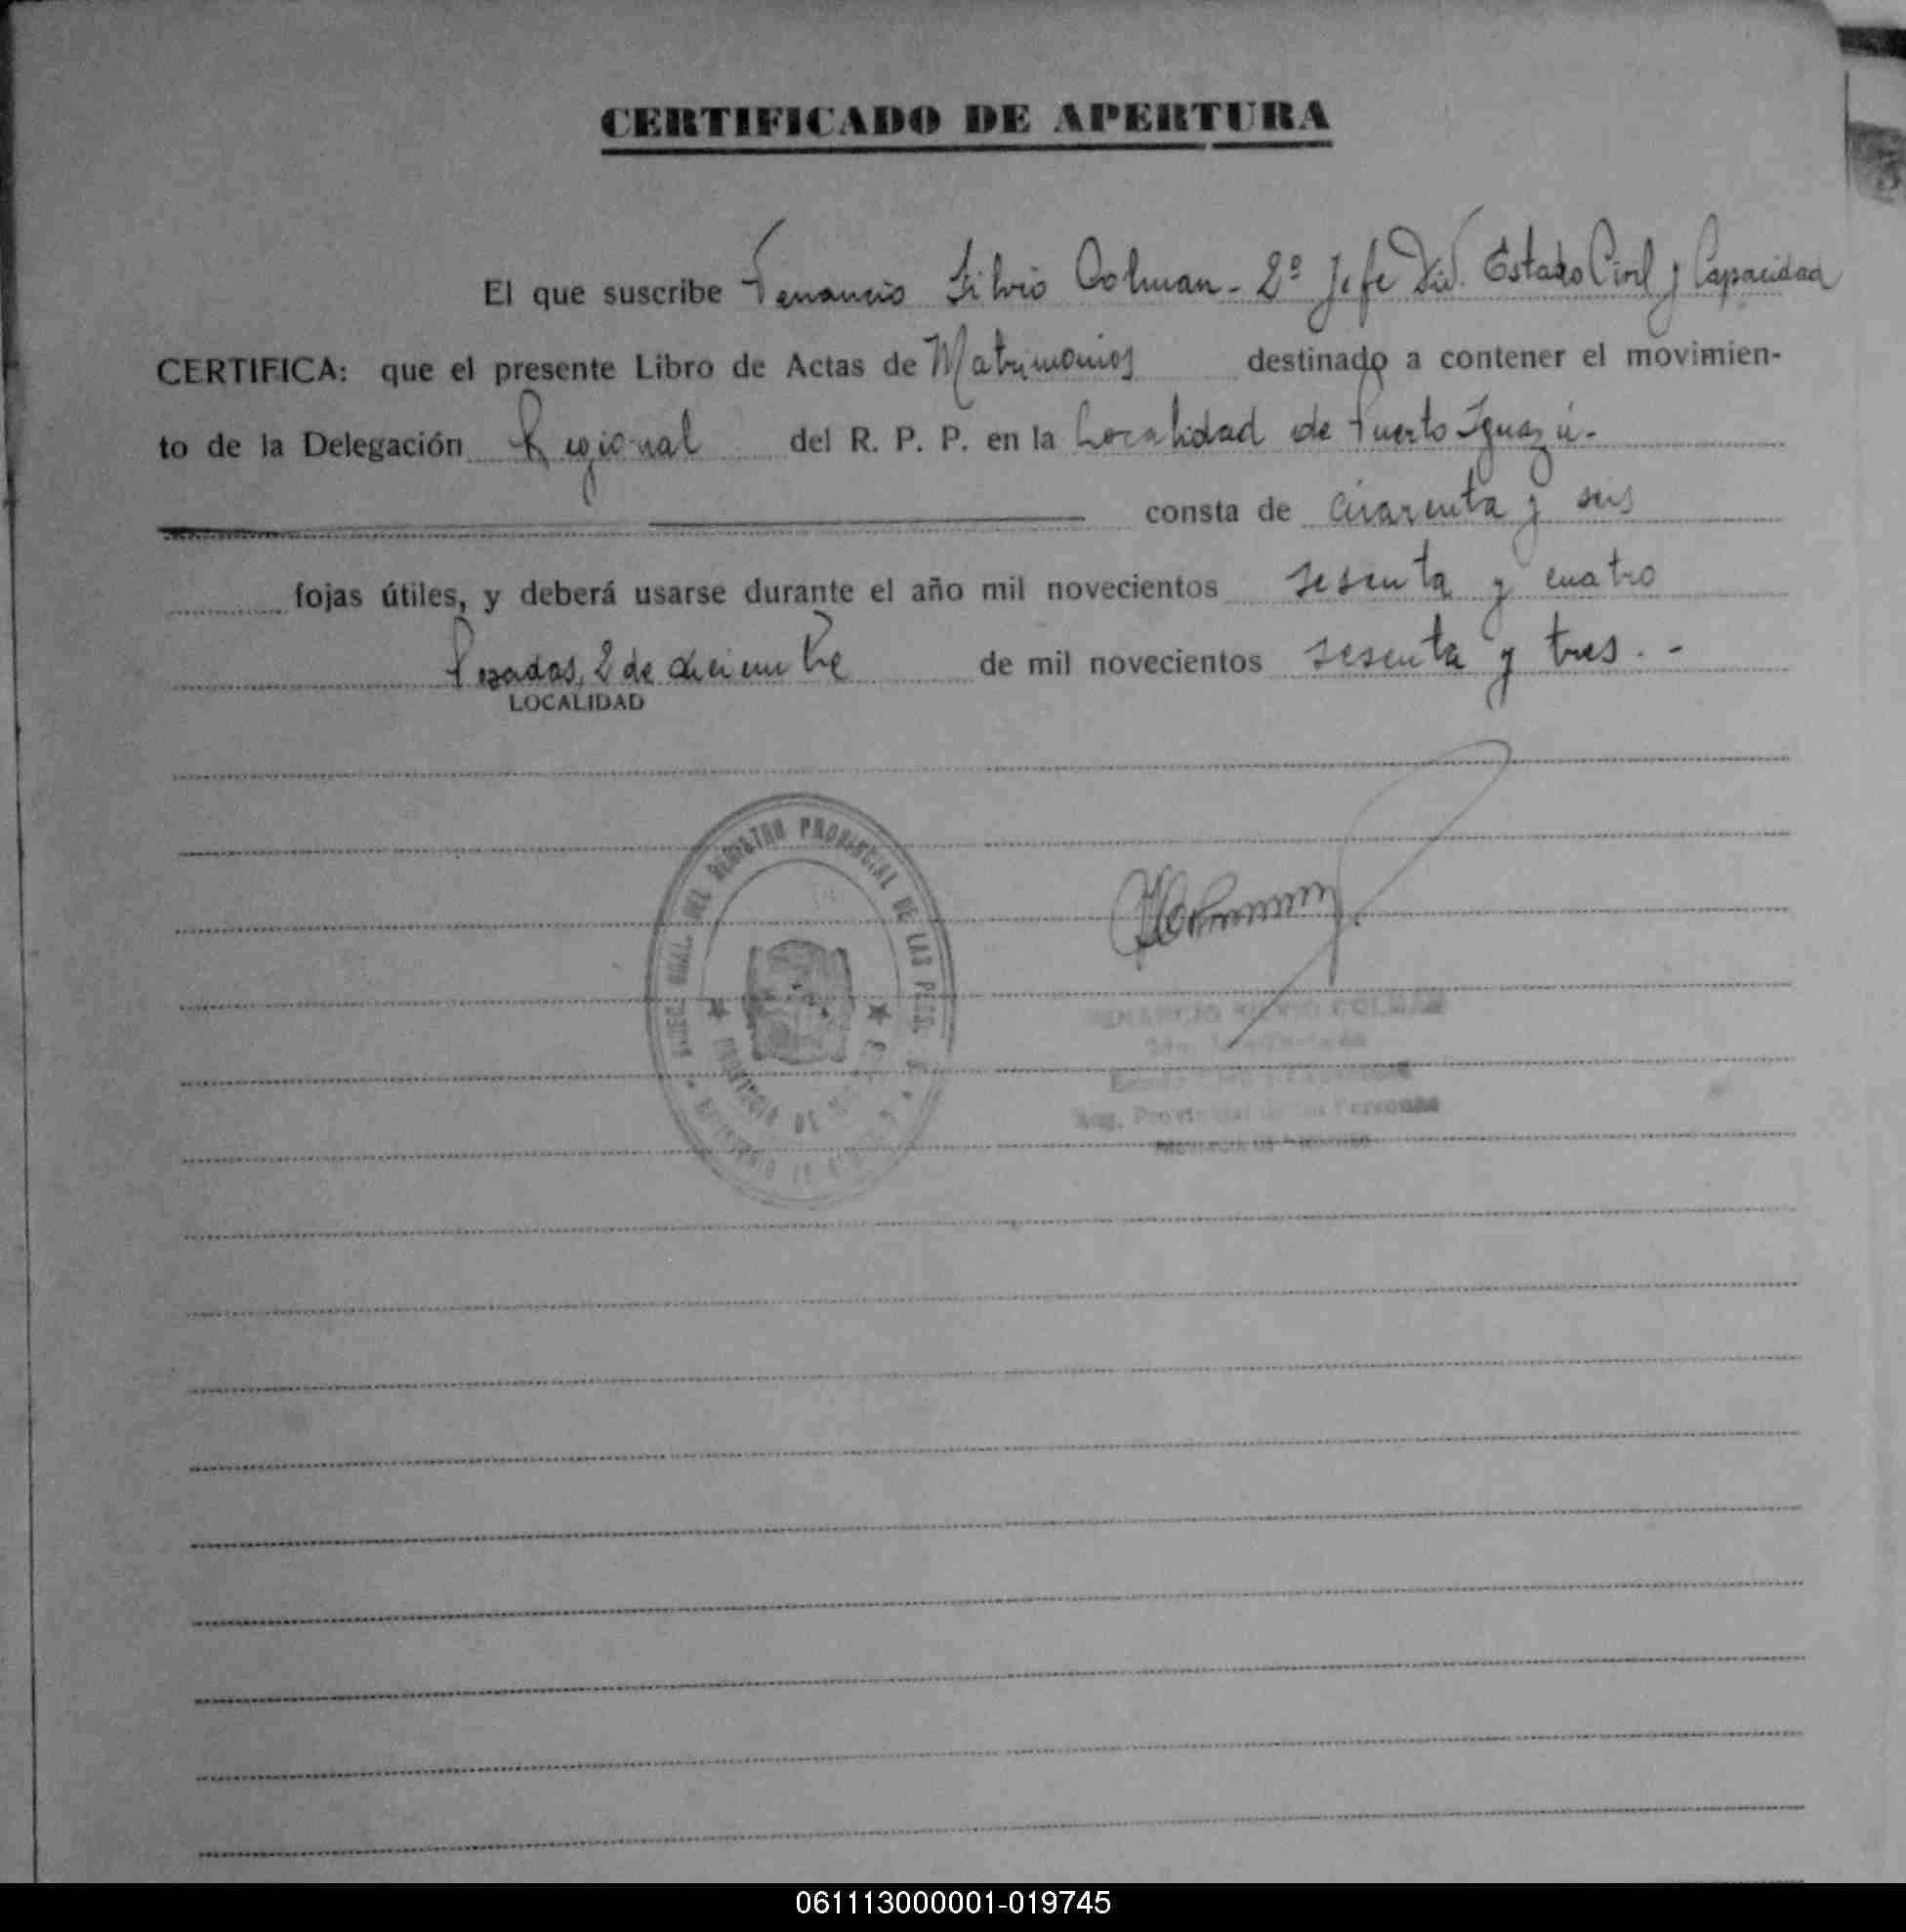 CERTIFICADO DE APERTURA
El que suscribe Venancio Silvio Colman - 2º Jefe Div. Estado Civil y Capacidad
CERTIFICA: que el presente Libro de Actas de Matrimonios destinado a contener el movimien-
to de la Delegación Regional del R. P. P. en la Localidad de Puerto Iguazú.-
consta de cuarenta y seis
fojas útiles, y deberá usarse durante el año mil novecientos sesenta y cuatro
Posadas, 2 de diciembre de mil novecientos sesenta y tres.-
LOCALIDAD
DIREC. GRAL. DEL REGISTRO PROVINCIAL DE LAS PERS.
PROVINCIA DE
VENANCIO SILVIO COLMAN
2do. Jefe
Estado Civil y Capacidad
Reg. Provincial de las Personas
PROVINCIA DE MISIONES
061113000001-019745